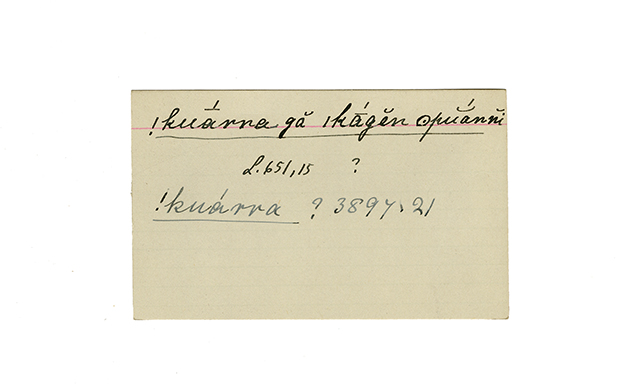 !kuá̄rra gă ǀkā́gĕn ʘpuắnni
L. 651, 15 ?
!kuárra ? 3897. 21